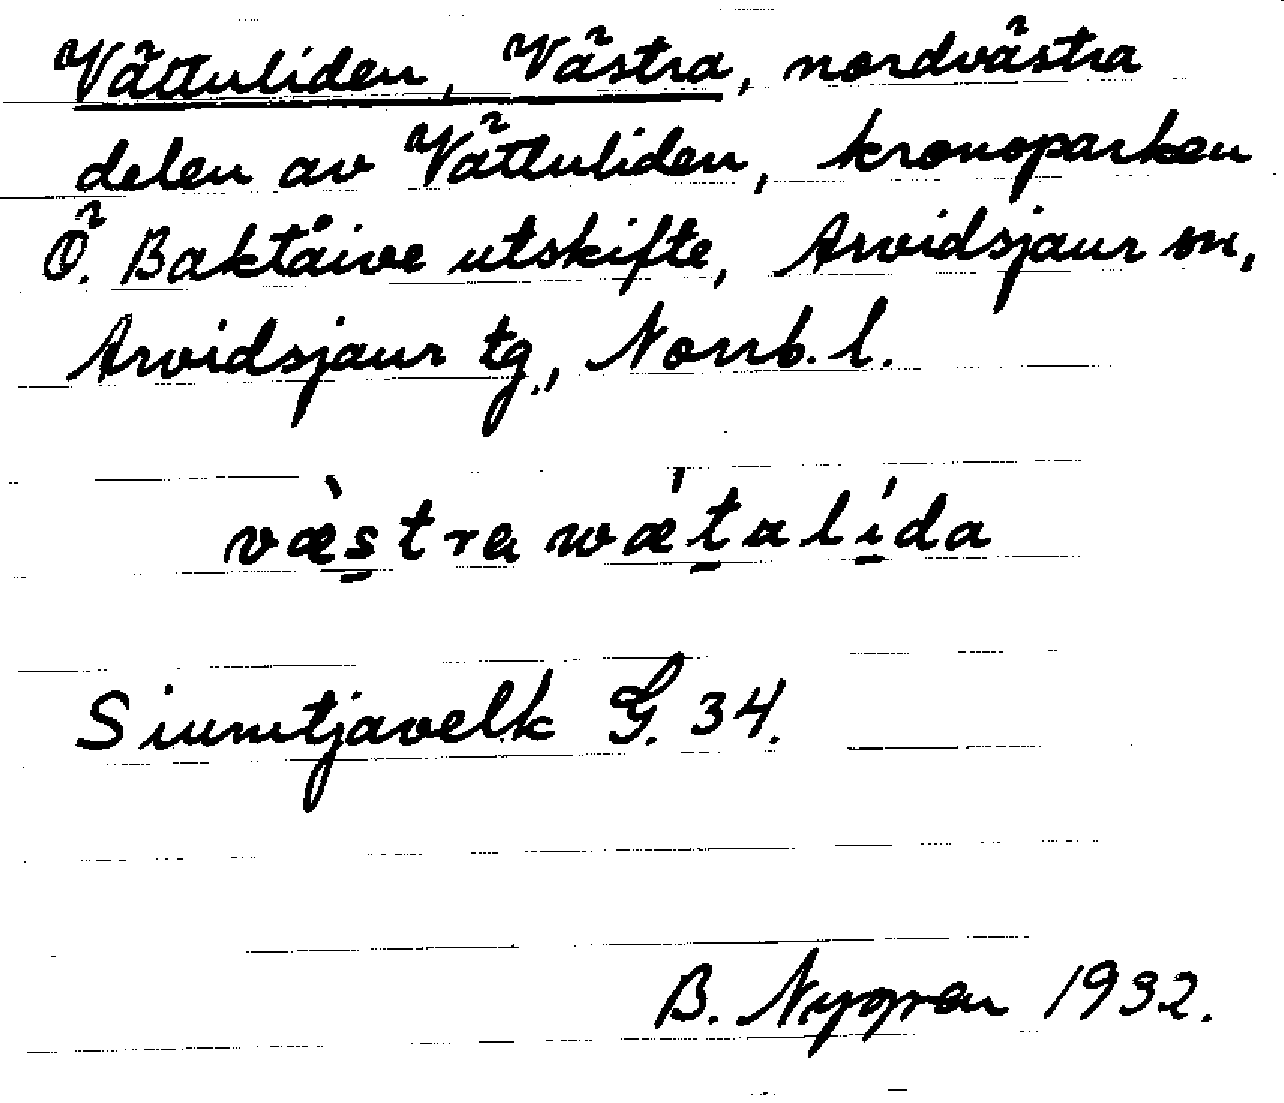 Vättuliden, Västra, nordvästra
delen av Vättuliden, kronoparken
Ö. Baktåive utskifte, Arvidsjaur sn,
Arvidsjaur tg., Norrb. l.
væ̀stra wǽtalída
Siumtjavelk G. 34.
B. Nygren 1932.